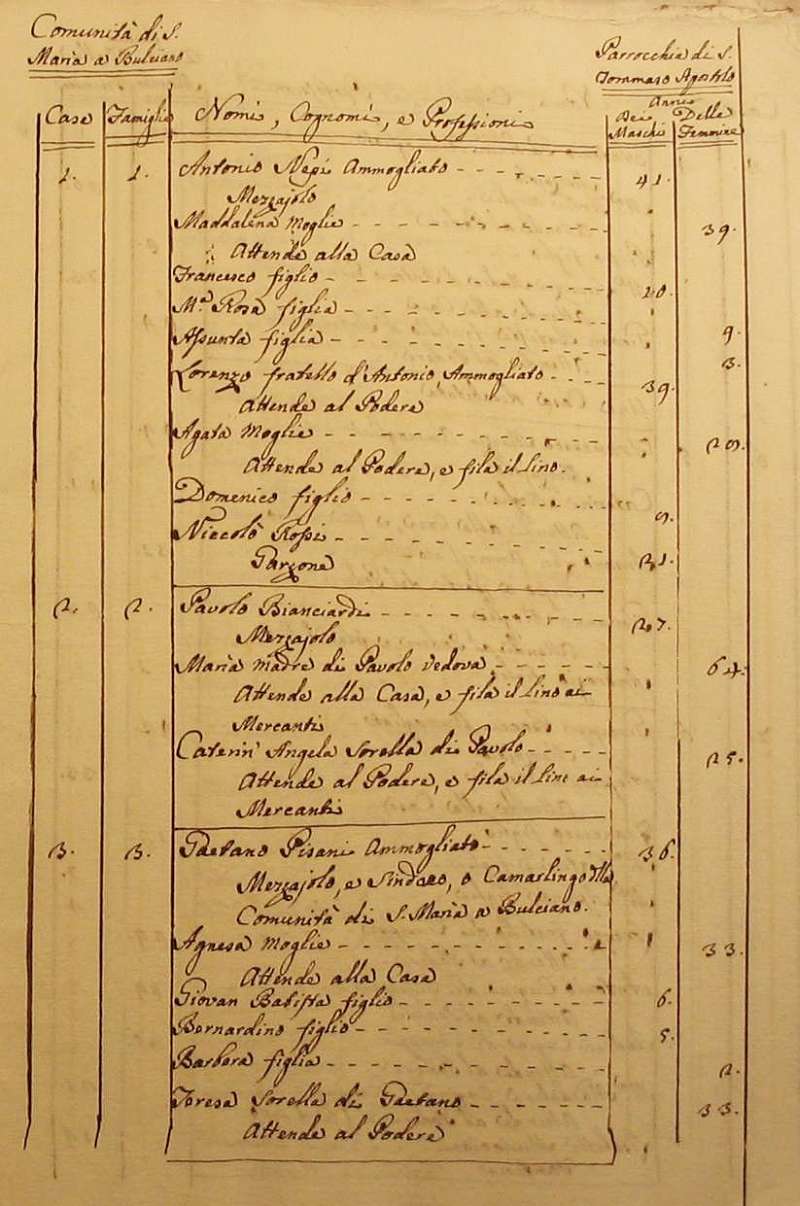 Comunità di S.
Maria a Bulciano
Parrocchia di S.
Tommaso Apostolo
Case Famiglie Nomi, Cognomi, e Professioni Anni
Dei Maschi Delle Femmine
1. 1. Antonio Nepi Ammogliato 41.
Mezzajolo
Maddalena Moglie 39.
Attende alla Casa
Francesco figlio 10.
M.a Rosa figlia 9.
Assunta figlia 3.
Lorenzo fratello d'Antonio, Ammogliato 39.
Attende al Podere
Agata Moglie
Attende al Podere, e fila il lino.
Domenico figlio
Niccolò Rossi 21.
Garzone
2. 2. Pavolo Bianciardi 27.
Mezzajolo
Maria Madre di Pavolo vedova 64.
Attende alla Casa, e fila il lino ai
Mercanti
Caterin' Angela Sorella di Pavolo 25.
Attende al Podere, e fila il lino ai
Mercanti
3. 3. Gaetano Pisani Ammogliato 36.
Mezzajolo, e Sindaco, o Camarlingo della
Comunità di S. Maria a Bulciano.
Agnesa Moglie 33.
Attende alla Casa
Giovan Batista figlio 6.
Bernardino figlio 5.
Barbera figlia 2.
Teresa Sorella di Gaetano 33.
Attende al Podere